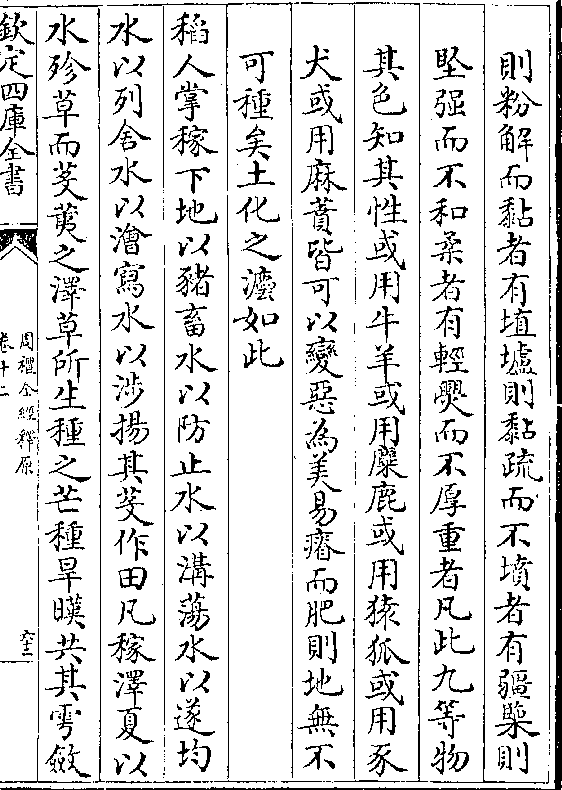 則粉解而黏者有埴壚則黏疏而不墳者有疆㯺則
堅强而不和柔者有輕㸐而不厚重者凡此九等物
其色知其性或用牛羊或用麋鹿或用猿狐或用豕
犬或用麻蕡皆可以變惡為美易瘠而肥則地無不
可種矣土化之灋如此
稻人掌稼下地以豬畜水以防止水以溝蕩水以遂均
水以列舍水以澮寫水以涉揚其芟作田凡稼澤夏以
水殄草而芟荑之澤草所生種之芒種旱暵共其雩斂
欽定四庫全書
周禮全經釋原
卷十二